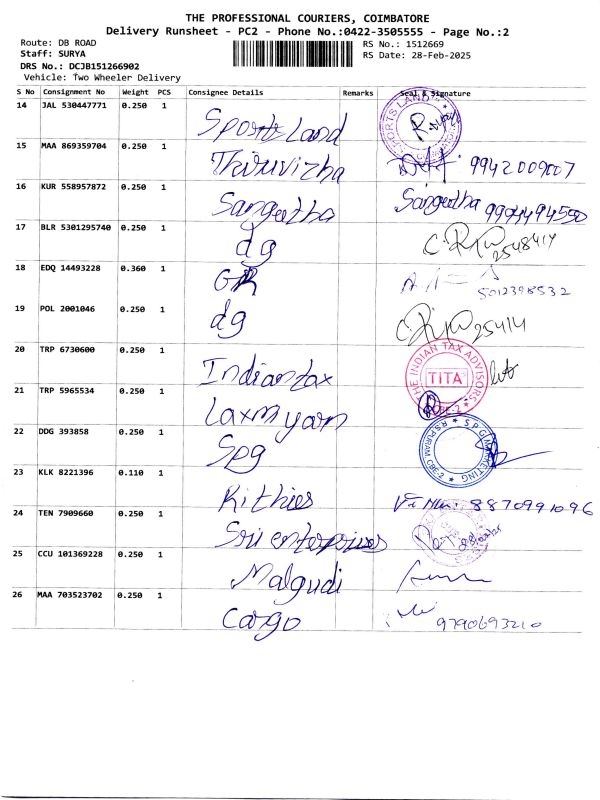 THE PROFESSIONAL COURIERS, COIMBATORE
Delivery Runsheet - PC2 - Phone No.:0422-3505555 - Page No.:2
Route: DB ROAD RS No.: 1512669
Staff: SURYA RS Date: 28-Feb-2025
DRS No.: DCJB151266902
Vehicle: Two Wheeler Delivery
S No Consignment No Weight PCS Consignee Details Remarks Seal & Signature
14 JAL 530447771 0.250 1 Sports Land SPORTS LAND
15 MAA 869359704 0.250 1 Thiruvizha 9942009007
16 KUR 558957872 0.250 1 Sangeetha Sangeetha
17 BLR 5301295740 0.250 1 dg
18 EDQ 14493228 0.360 1 5012398532
19 POL 2001046 0.250 1 dg 25414
20 TRP 6730600 0.250 1 Indian tax THE INDIAN TAX ADVISORS TITA CBE-2
21 TRP 5965534 0.250 1 Laxmi yarn
22 DDG 393858 0.250 1 Spg SPG MARKETING R S PURAM CBE-2
23 KLK 8221396 0.110 1 Rithies 8870991096
24 TEN 7909660 0.250 1 Sri enterprises
25 CCU 101369228 0.250 1 Malgudi
26 MAA 703523702 0.250 1 Cargo 9790693210